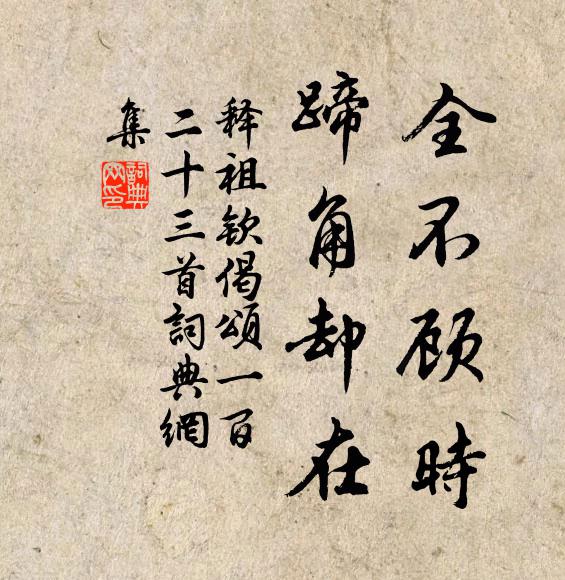 全不顾時
蹄角却在
释祖钦偈頌一百
二十三首詞典網
集
詞典
网印